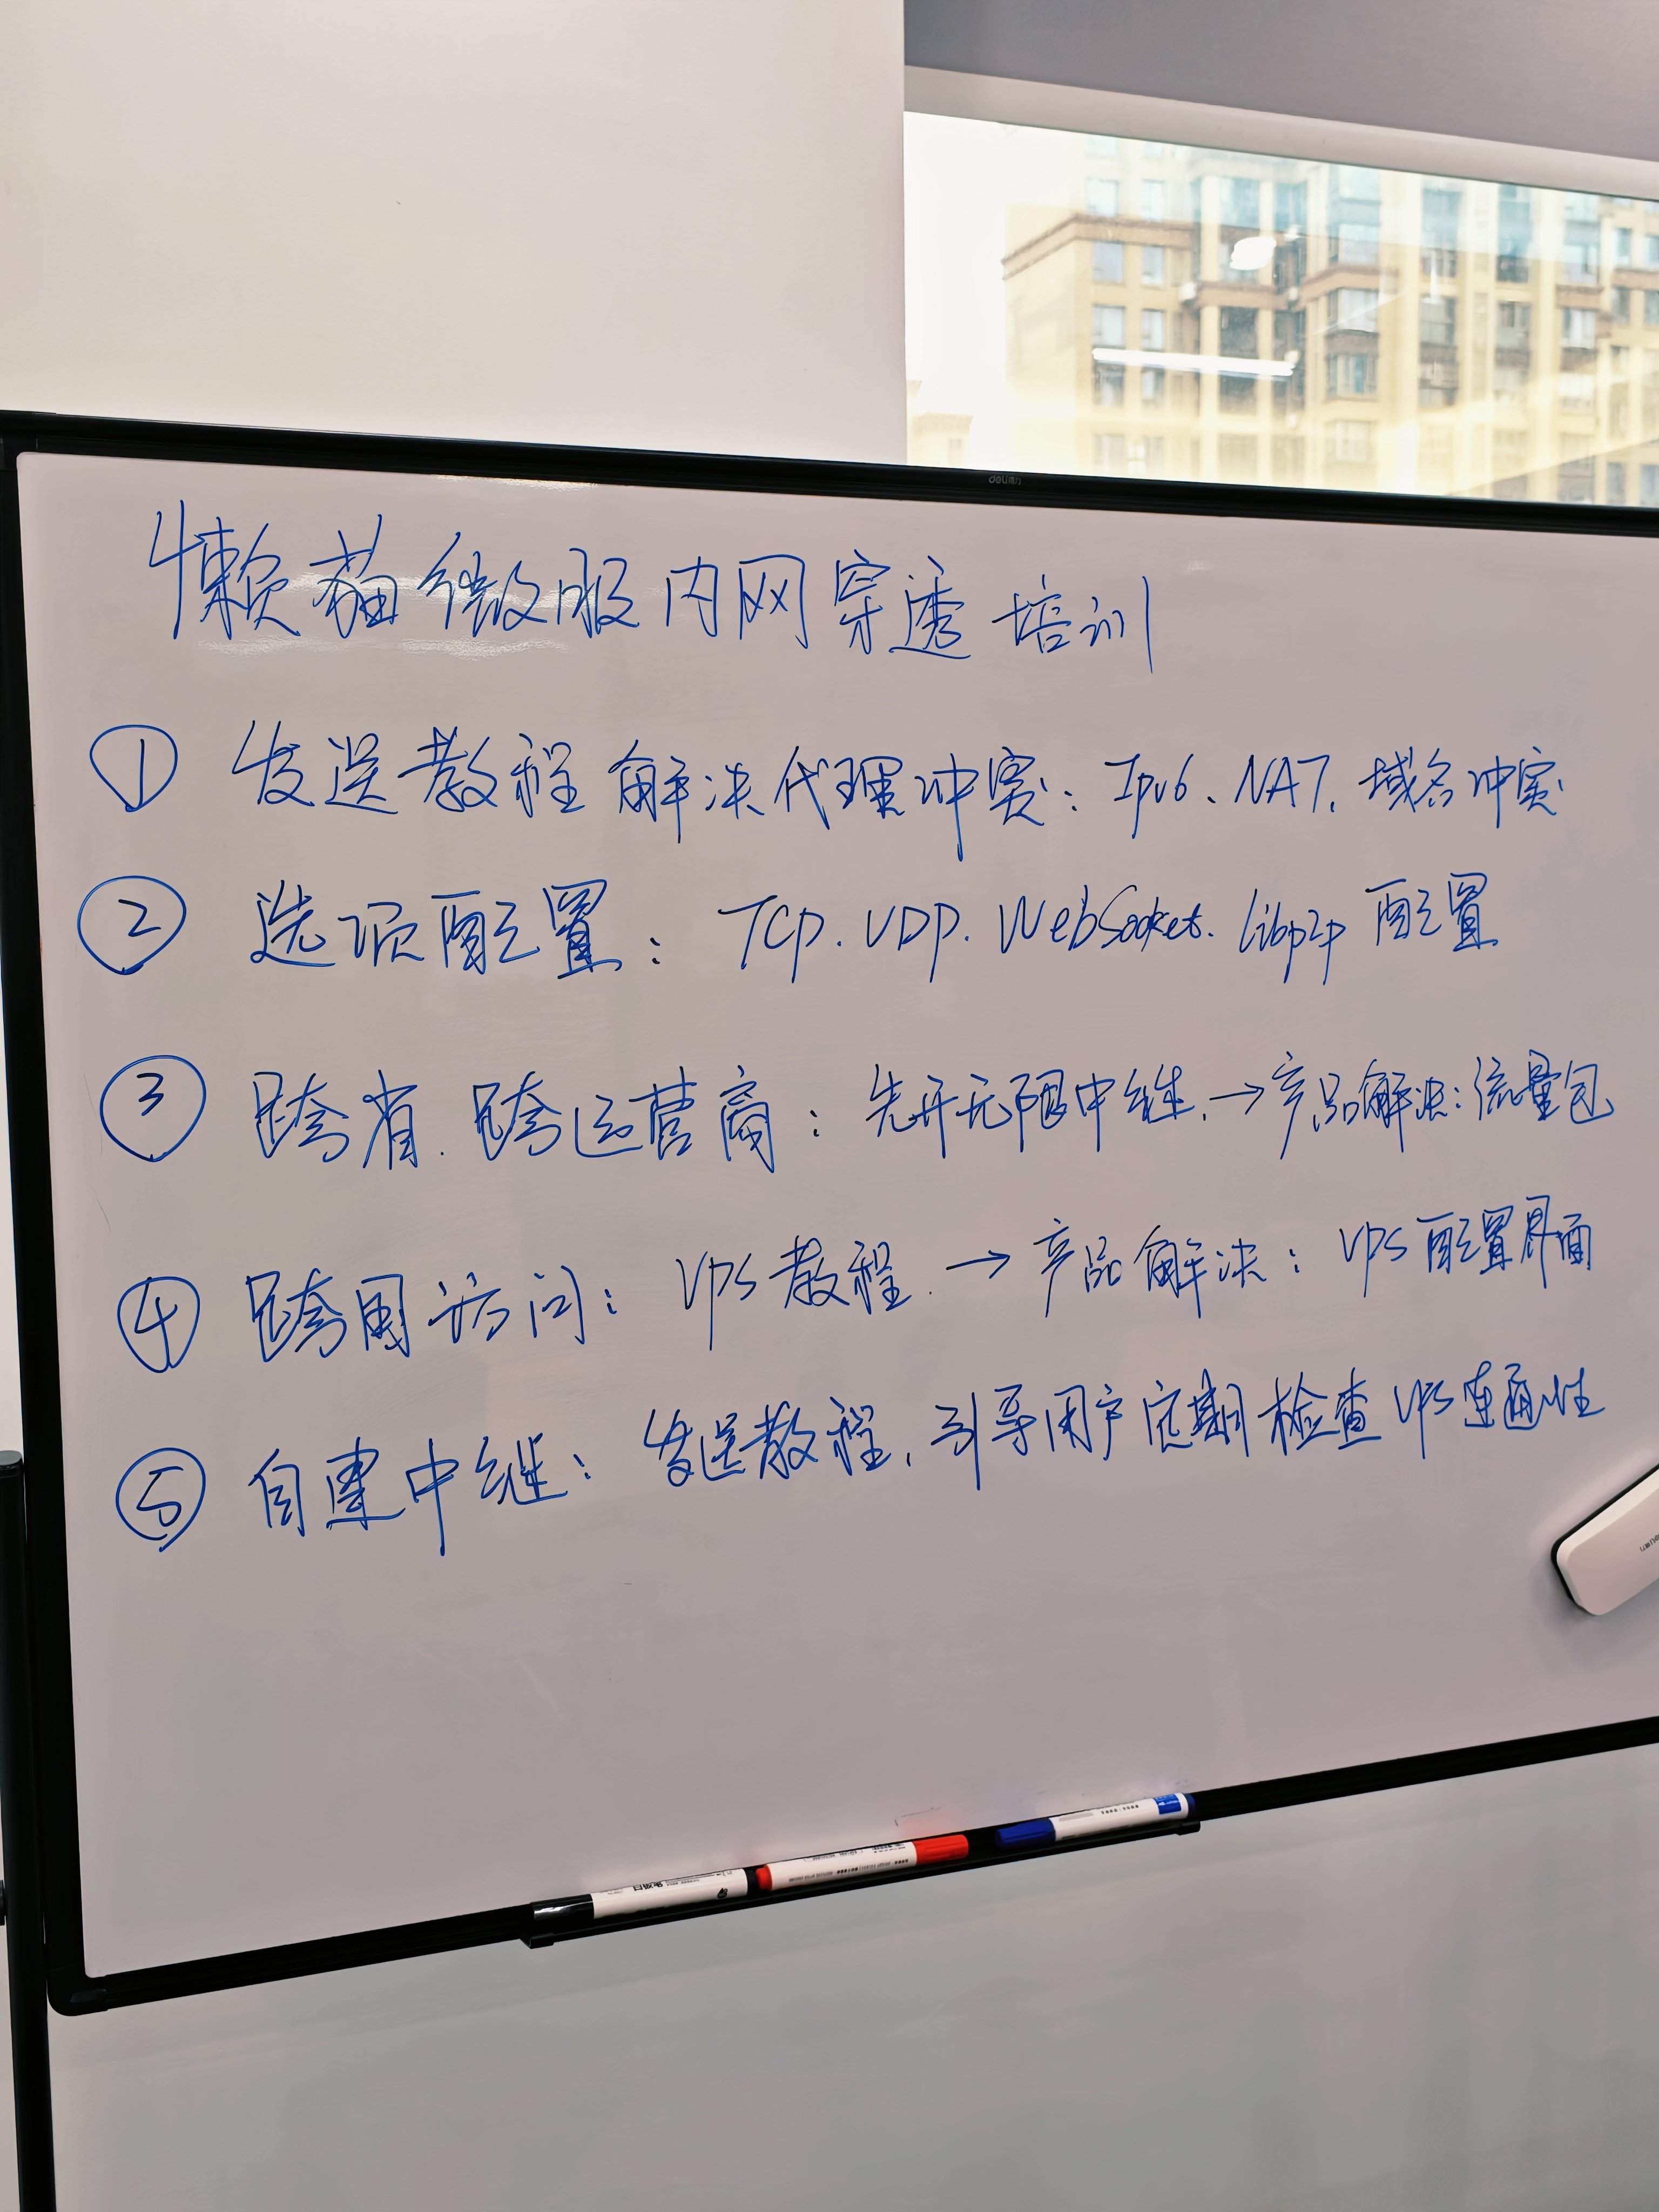 deli得力
懒猫微服内网穿透培训
① 发送教程解决代理冲突：Ipv6、NAT、域名冲突
② 选项配置：TCP、UDP、WebSocket、Libp2p 配置
③ 跨省、跨运营商：先开无限中继、→产品解决：流量包
④ 跨国访问：VPS 教程、→产品解决：VPS 配置界面
⑤ 自建中继：发送教程，引导用户定期检查 VPS 连通性